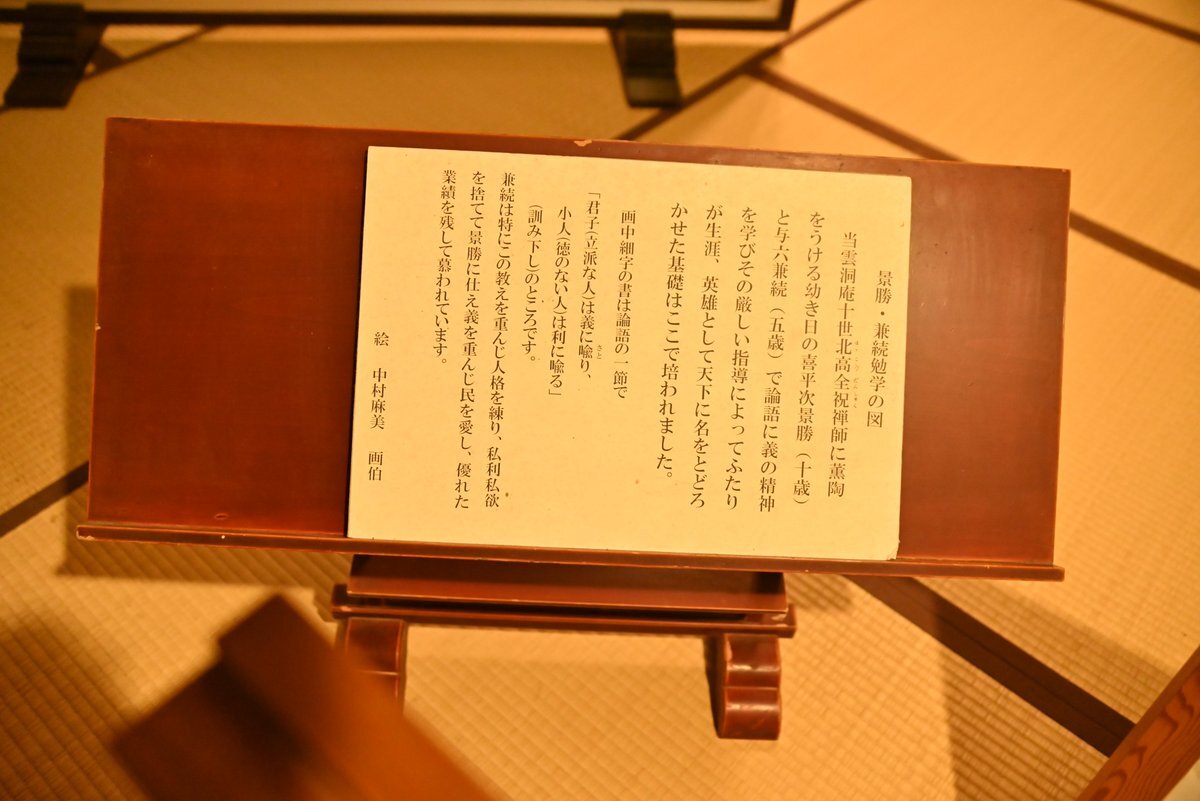 景勝・兼続勉学の図
当雲洞庵十世北高全祝禅師に薫陶
をうける幼き日の喜平次景勝（十歳）
と与六兼続（五歳）で論語に義の精神
を学びその厳しい指導によってふたり
が生涯、英雄として天下に名をとどろ
かせた基礎はここで培われました。
画中細字の書は論語の一節で
「君子(立派な人)は義に喩り、
小人(徳のない人)は利に喩る」
(訓み下し)のところです。
兼続は特にこの教えを重んじ人格を練り、私利私欲
を捨てて景勝に仕え義を重んじ民を愛し、優れた
業績を残して慕われています。
絵　中村麻美　画伯